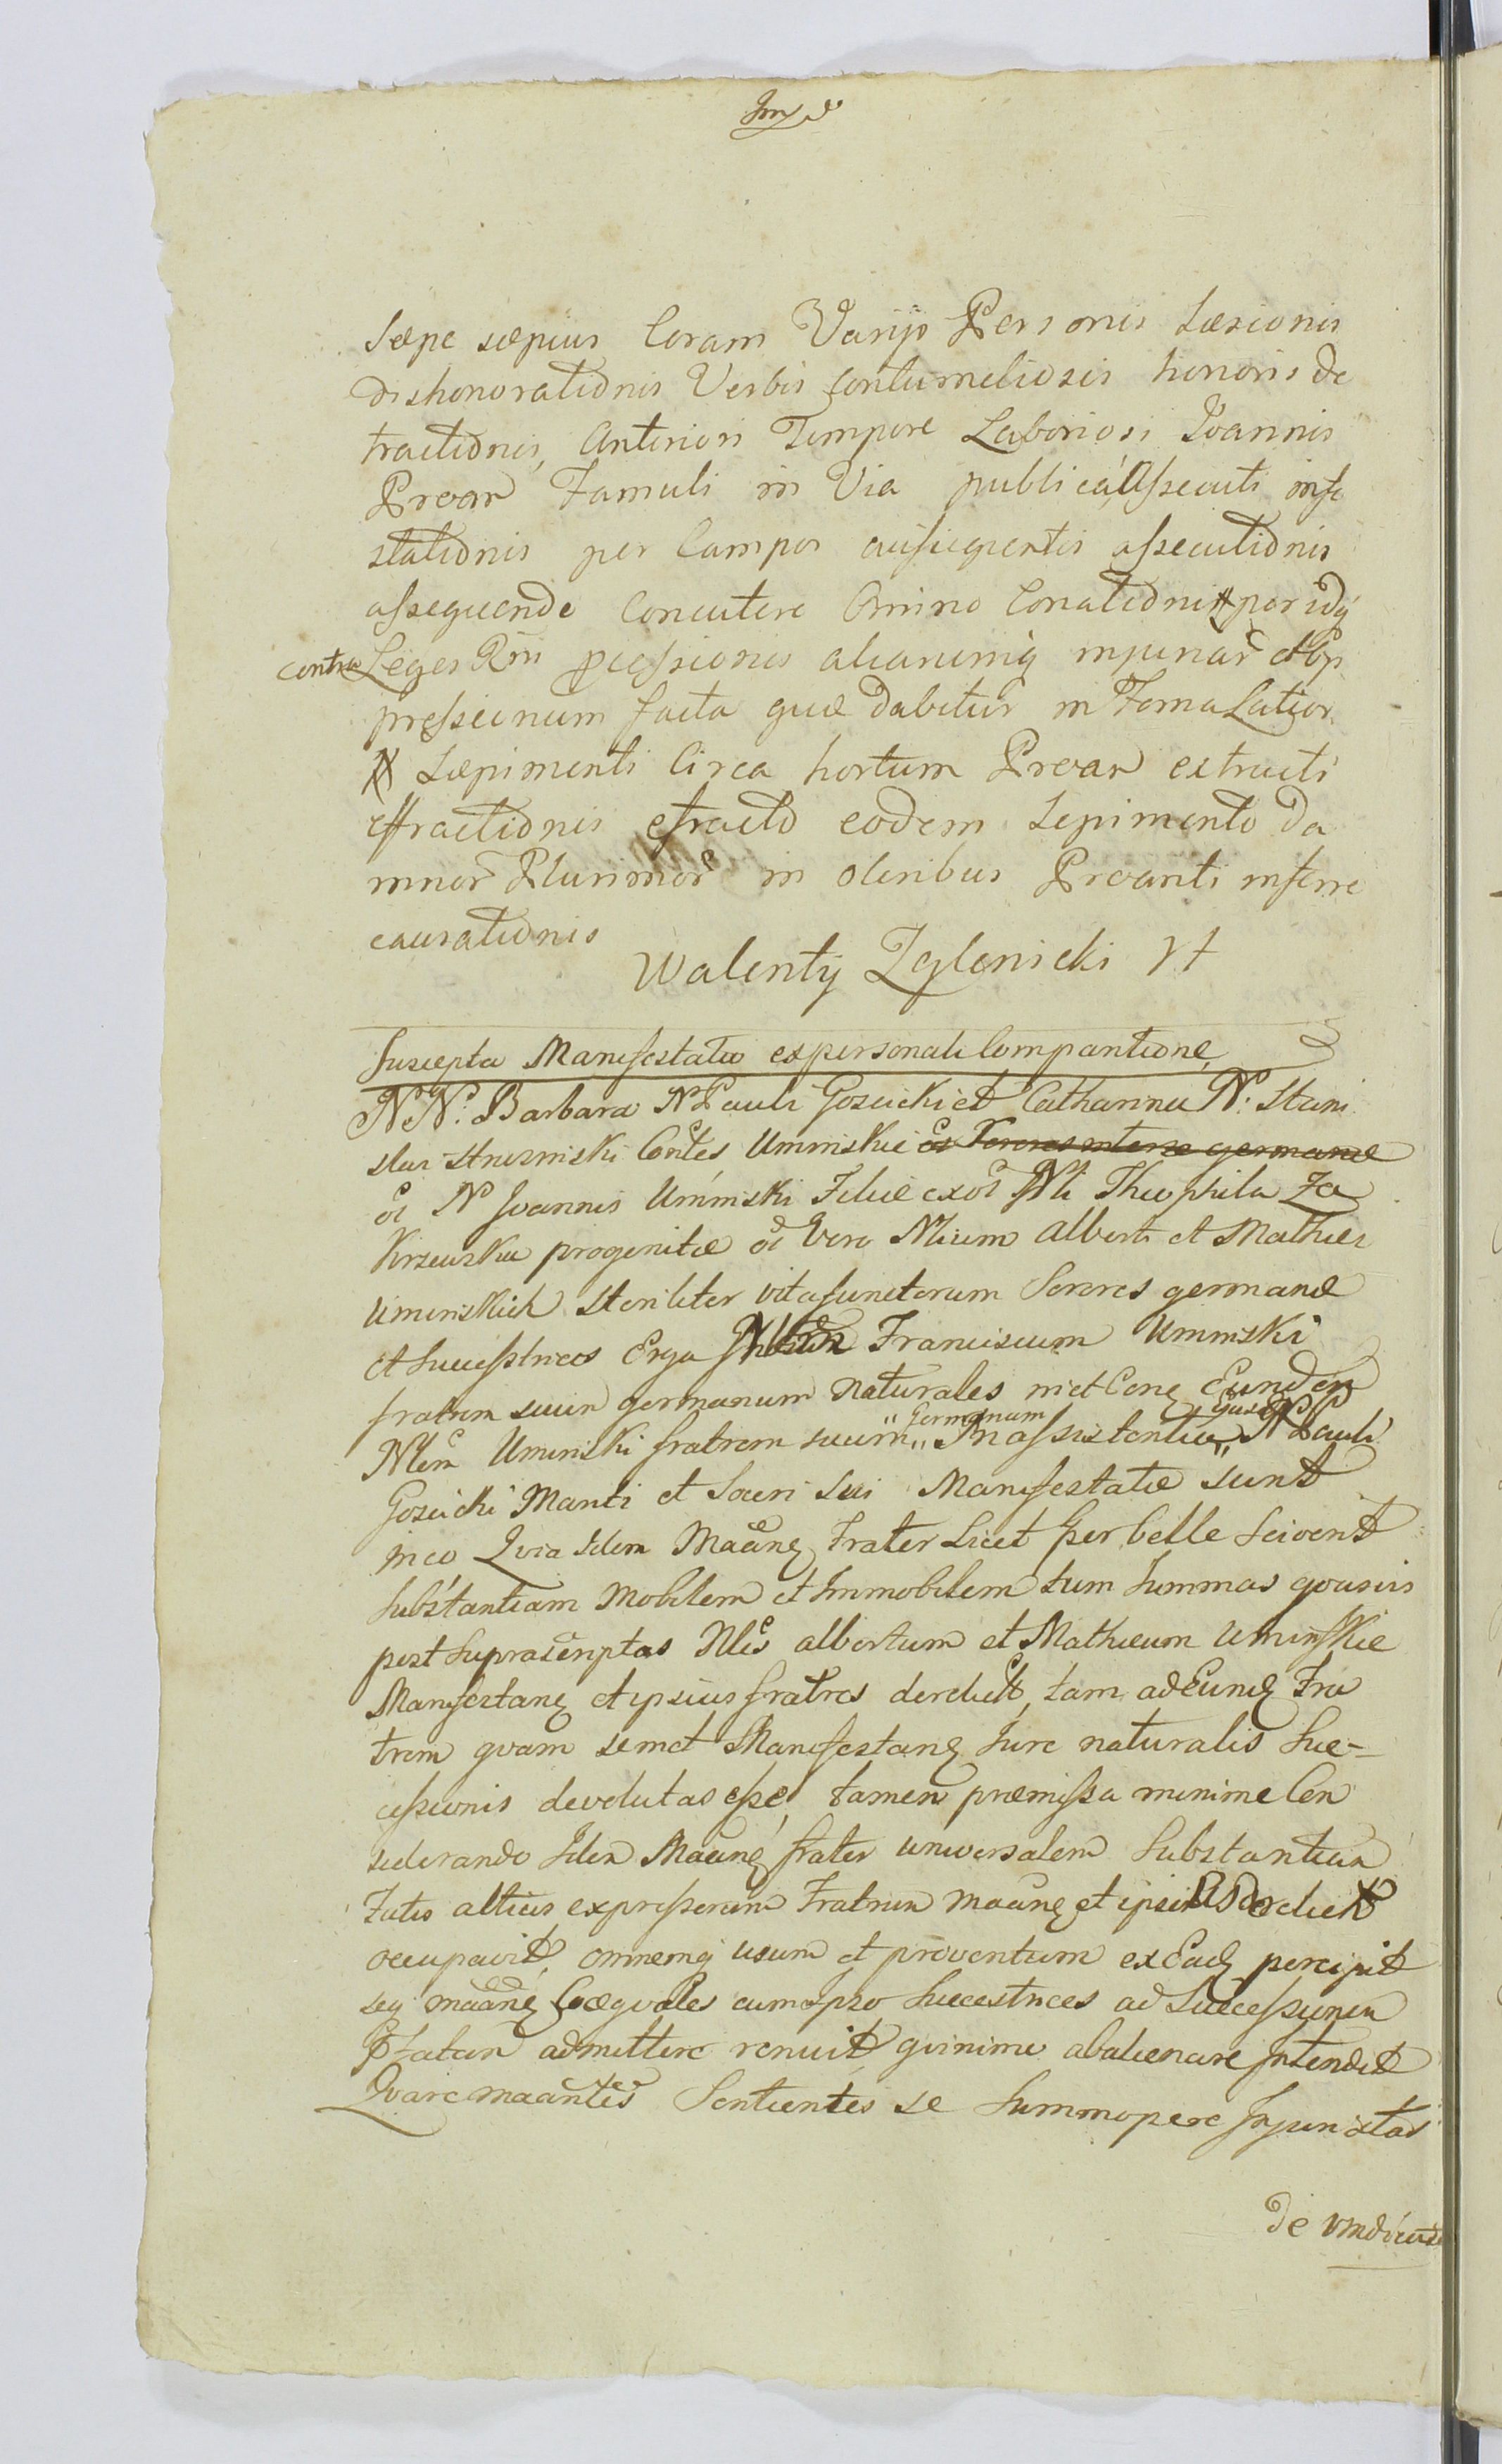 Sæpe sæpius Coram Varijs Personis Læsionis
dishonorationis Verbis Contumeliosis honoris de
tractionis, Anteriori Tempore Laboriosi Joannis
Proan Famuli in Via publica, Assecuti infe
stationis per Campos assecutionis
assequende Concutere Animo Conationis per idq
contra Leges Rni pcessionis aliarumq injuriar et Op
pressionum facta quæ dabitur in Forma Latior
Sæpimenti Circa hortum Proan extructi
effractionis efracto eodem Sepimento Da
mnor Plurimor in oleribus Proanti inferre
causationis
Walenty Zglenicki
Suscepta Manifestatio ex personali Comparitione
NN: Barbara N Pauli Gosicki et Catharina N: Stani
slai Conjtes Uminskie Sorores inter se germanæ
oi N Joannis Uminski Filiæ exor Nli Theophila Za
Krzewska progenitæ oi Vero Nlium Alberti et Mathæi
Uminskich steriliter vita functorum Sorores germanæ
et Successtrices Erga Franciscum Uminski
fratrem suum germanum naturales Eundem
Nlem Uminski fratrem suum Germanum In assistentia N Pauli
Gosicki Mariti et Soceri sui Manifestatæ sunt
in eo Quia Idem Maane Frater Licet per belle Scivent
Substantiam Mobilem et Immobilem tum Summas quasvis
post Suprascriptos Nles Albertum et Mathæum Uminskie
Manifestane et ipsius fratres derelict, tam ad Eunde Fra
trem quam semet Manifestane Jure naturalis Suc-
cessionis devolutas esse, tamen præmissa minime Con
siderando Idem Maane frater universalem Substantiam
Fatis altius expressorum Fratrum maane et ipsius derelict
occupavit, omnemq usum et proventum ex Eade percipit
seq maane Coæquales cum ipso Successtrices ad Successionem
Pfatam admittere renuit quinimo abalienare Intendit
Quare maantes Sentientes se Summopere Injuriatas
de vindicuisse